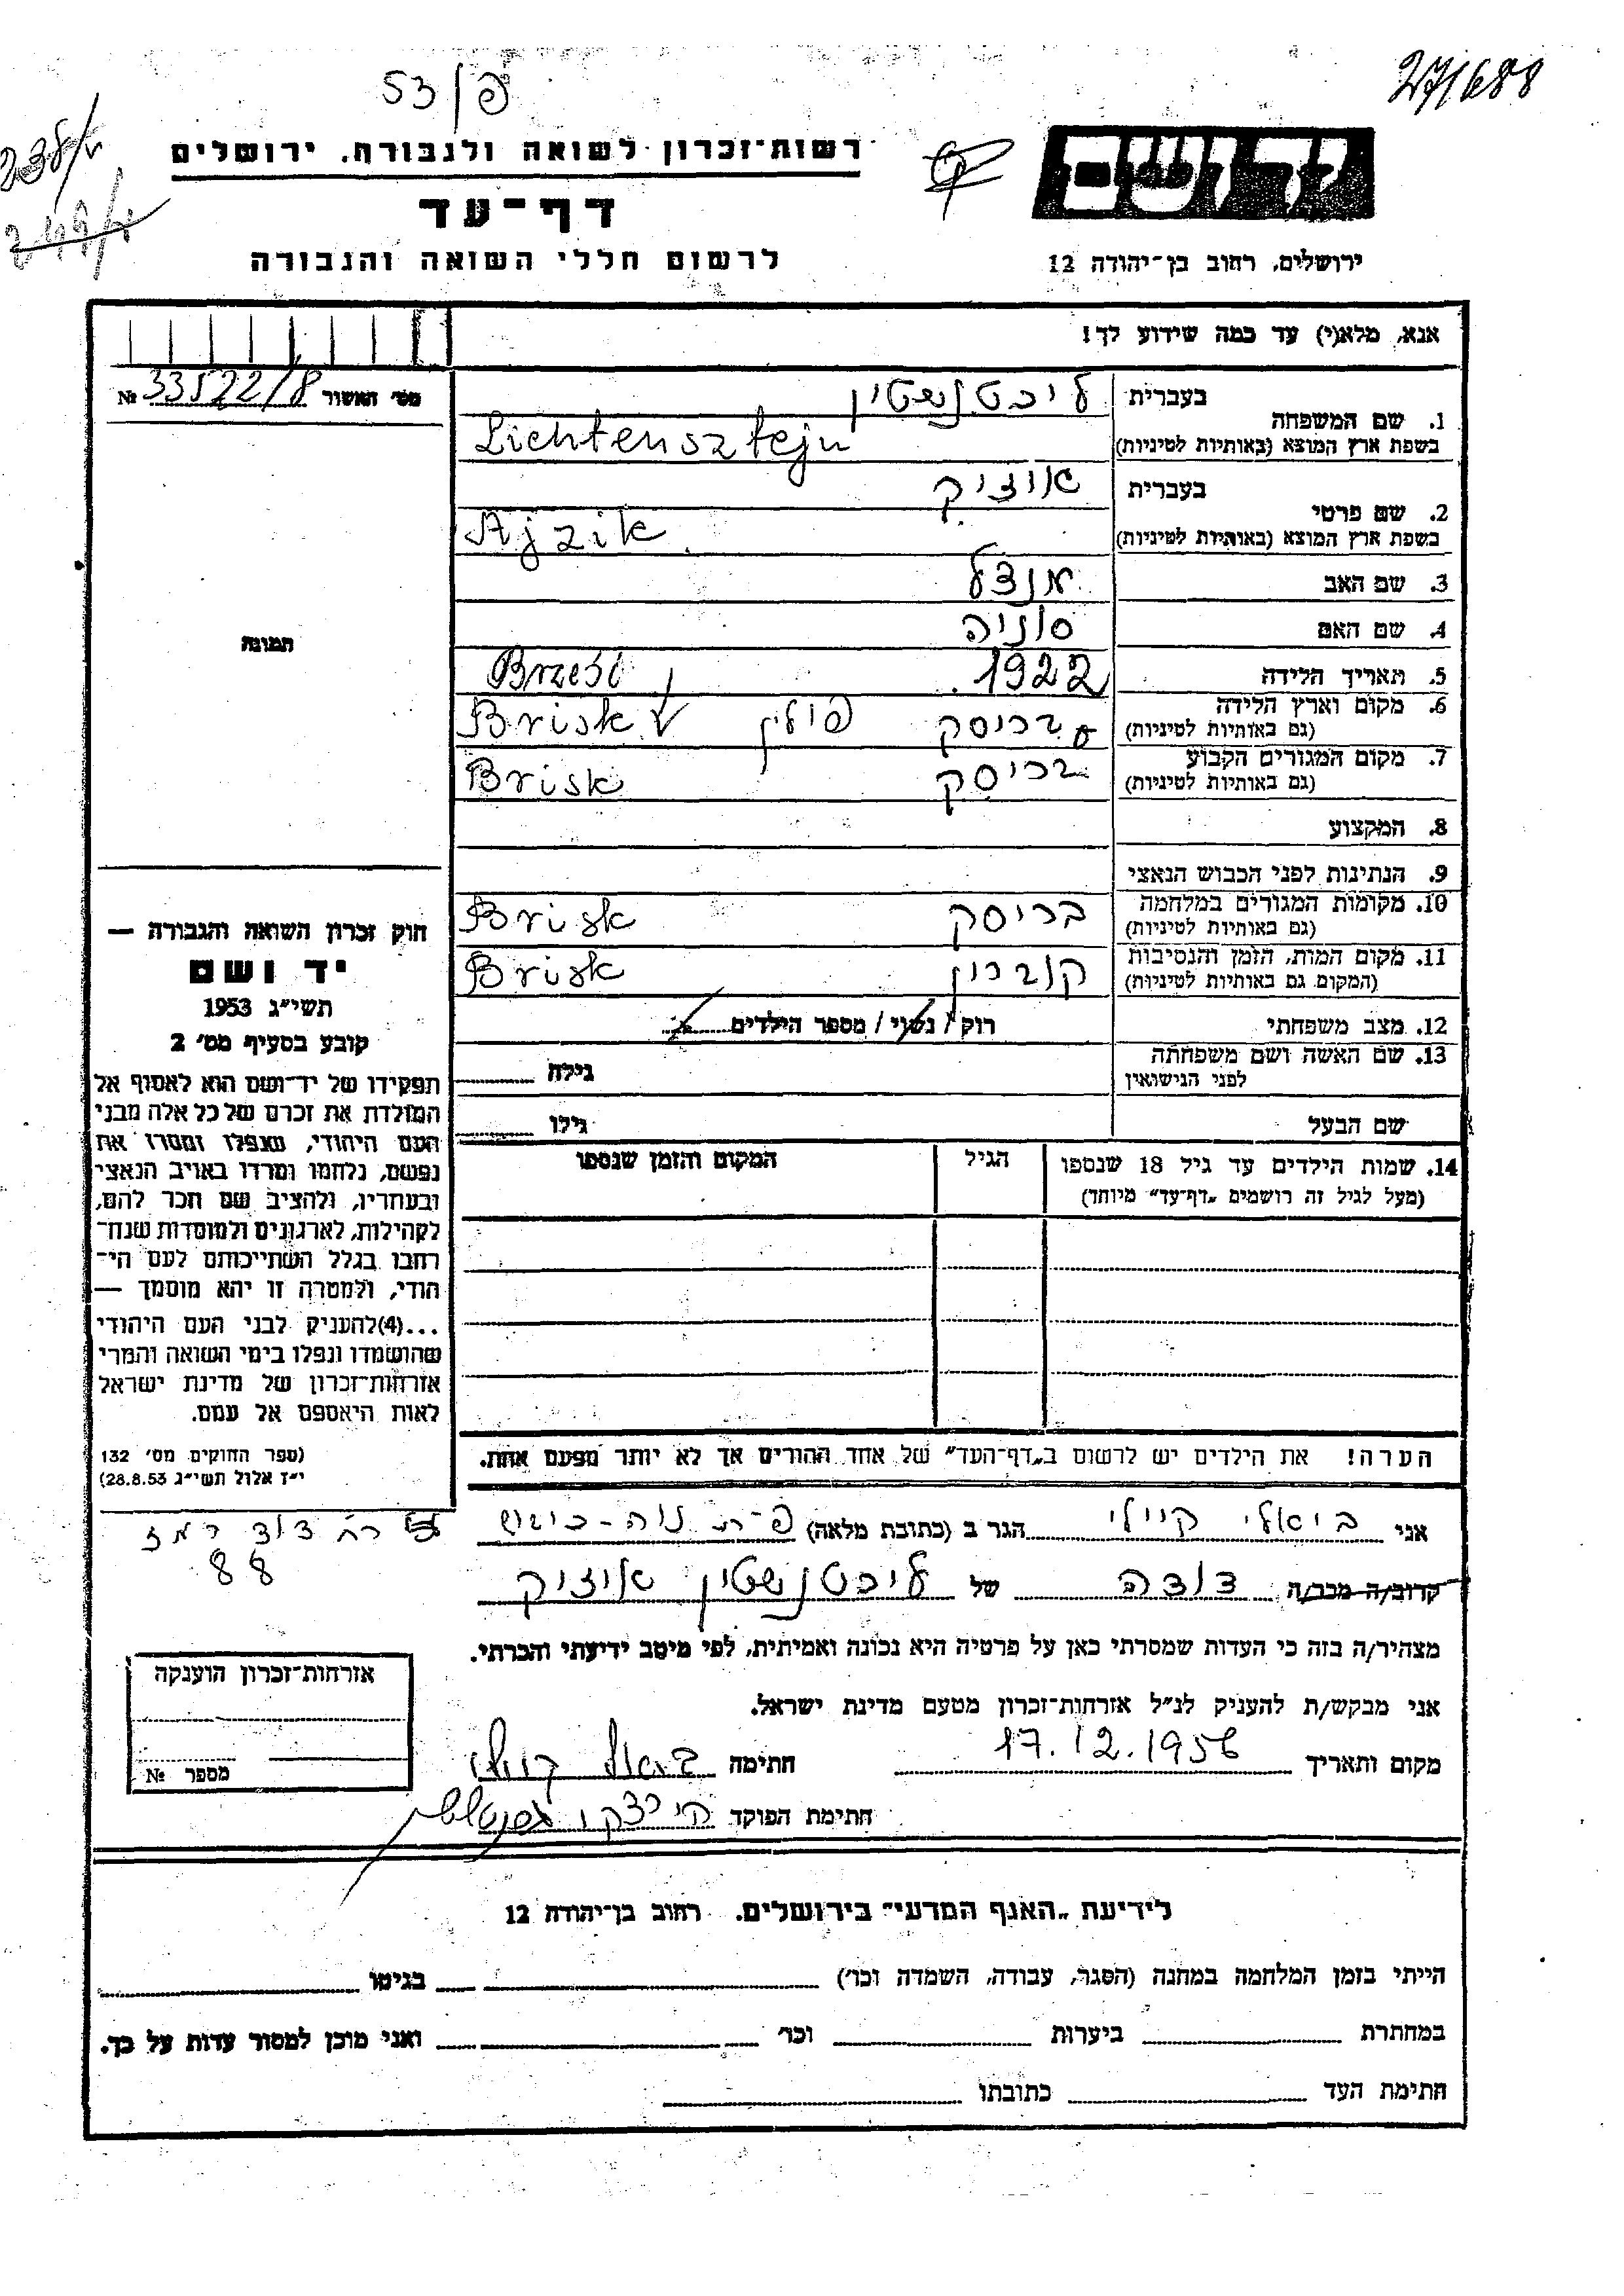 53/פ
27/688
רשות־זכרון לשואה ולגבורה, ירושלים
יד ושם
דף־עד
לרשום חללי השואה והגבורה
ירושלים, רחוב בן־יהודה 12
אנא, מלא(י) עד כמה שידוע לך!
מס׳ האשור 33522/8 №
1. שם המשפחה בעברית ליכטנשטין
בשפת ארץ המוצא (באותיות לטיניות) Lichtensztejn
2. שם פרטי בעברית איזיק
בשפת ארץ המוצא (באותיות לטיניות) Ajzik
3. שם האב מנדל
4. שם האם סוניה
5. תאריך הלידה 1922
Brześć
6. מקום וארץ הלידה בריסק פולין Brisk
(גם באותיות לטיניות)
7. מקום המגורים הקבוע בריסק Brisk
(גם באותיות לטיניות)
8. המקצוע
9. הנתינות לפני הכבוש הנאצי
10. מקומות המגורים במלחמה בריסק Brisk
(גם באותיות לטיניות)
11. מקום המות, הזמן והנסיבות קוברין Brisk
(המקום גם באותיות לטיניות)
12. מצב משפחתי רוק / נשוי / מספר הילדים
13. שם האשה ושם משפחתה גילה
לפני הנישואין
שם הבעל גילו
14. שמות הילדים עד גיל 18 שנספו הגיל המקום והזמן שנספו
(מעל לגיל זה רושמים „דף־עד” מיוחד)
הערה! את הילדים יש לרשום ב„דף־העד” של אחד ההורים אך לא יותר מפעם אחת.
תמונה
חוק זכרון השואה והגבורה —
יד ושם
תשי״ג 1953
קובע בסעיף מס׳ 2
תפקידו של יד־ושם הוא לאסוף אל
המולדת את זכרם של כל אלה מבני
העם היהודי, שנפלו ומסרו את
נפשם, נלחמו ומרדו באויב הנאצי
ובעוזריו, ולהציב שם וזכר להם,
לקהילות, לארגונים ולמוסדות שנח־
רבו בגלל השתייכותם לעם הי־
הודי, ולמטרה זו יהא מוסמך —
...(4)להעניק לבני העם היהודי
שהושמדו ונפלו בימי השואה והמרי
אזרחות־זכרון של מדינת ישראל
לאות היאספם אל עמם.
(ספר החוקים מס׳ 132
י״ז אלול תשי״ג 28.8.53)
אני ביאלי קיילי הגר ב (כתובת מלאה) פ״ת נוה־כיבוש
רח דוד רמז
88
קרוב/ה מכר/ה דודה של ליכטנשטין איזיק
מצהיר/ה בזה כי העדות שמסרתי כאן על פרטיה היא נכונה ואמיתית, לפי מיטב ידיעתי והכרתי.
אני מבקש/ת להעניק לנ״ל אזרחות־זכרון מטעם מדינת ישראל.
מקום ותאריך 17.12.1956 חתימה
חתימת הפוקד
אזרחות־זכרון הוענקה
מספר №
לידיעת „האגף המדעי” בירושלים, רחוב בן־יהודה 12
הייתי בזמן המלחמה במחנה (הסגר, עבודה, השמדה וכו׳) בגיטו
במחתרת ביערות וכו׳ ואני מוכן למסור עדות על כך.
חתימת העד כתובתו